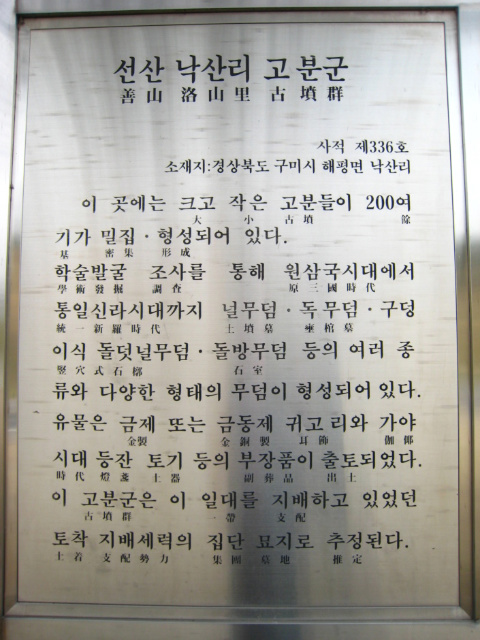 선산 낙산리 고분군
善山 洛山里 古墳群
사적 제336호
소재지:경상북도 구미시 해평면 낙산리
이 곳에는 크고 작은 고분들이 200여
大 小 古墳 餘
기가 밀집·형성되어 있다.
基 密集 形成
학술발굴 조사를 통해 원삼국시대에서
學術發掘 調査 原三國時代
통일신라시대까지 널무덤·독무덤·구덩
統一新羅時代 土墳墓 甕棺墓
이식 돌덧널무덤·돌방무덤 등의 여러 종
竪穴式石槨 石室
류와 다양한 형태의 무덤이 형성되어 있다.
유물은 금제 또는 금동제 귀고리와 가야
金製 金銅製 耳飾 伽倻
시대 등잔 토기 등의 부장품이 출토되었다.
時代 燈盞 土器 副葬品 出土
이 고분군은 이 일대를 지배하고 있었던
古墳群 一帶 支配
토착 지배세력의 집단 묘지로 추정된다.
土着 支配勢力 集團 墓地 推定